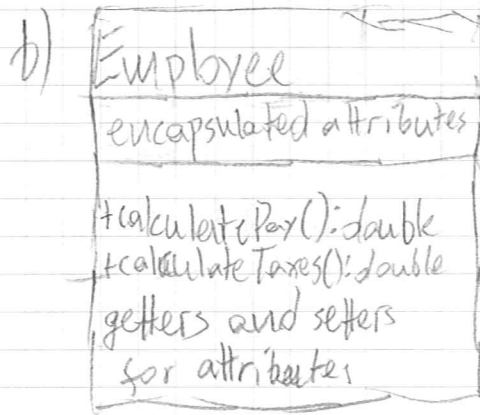 b)
Employee
encapsulated attributes
+calculatePay():double
+calculateTaxes():double
getters and setters
for attributes